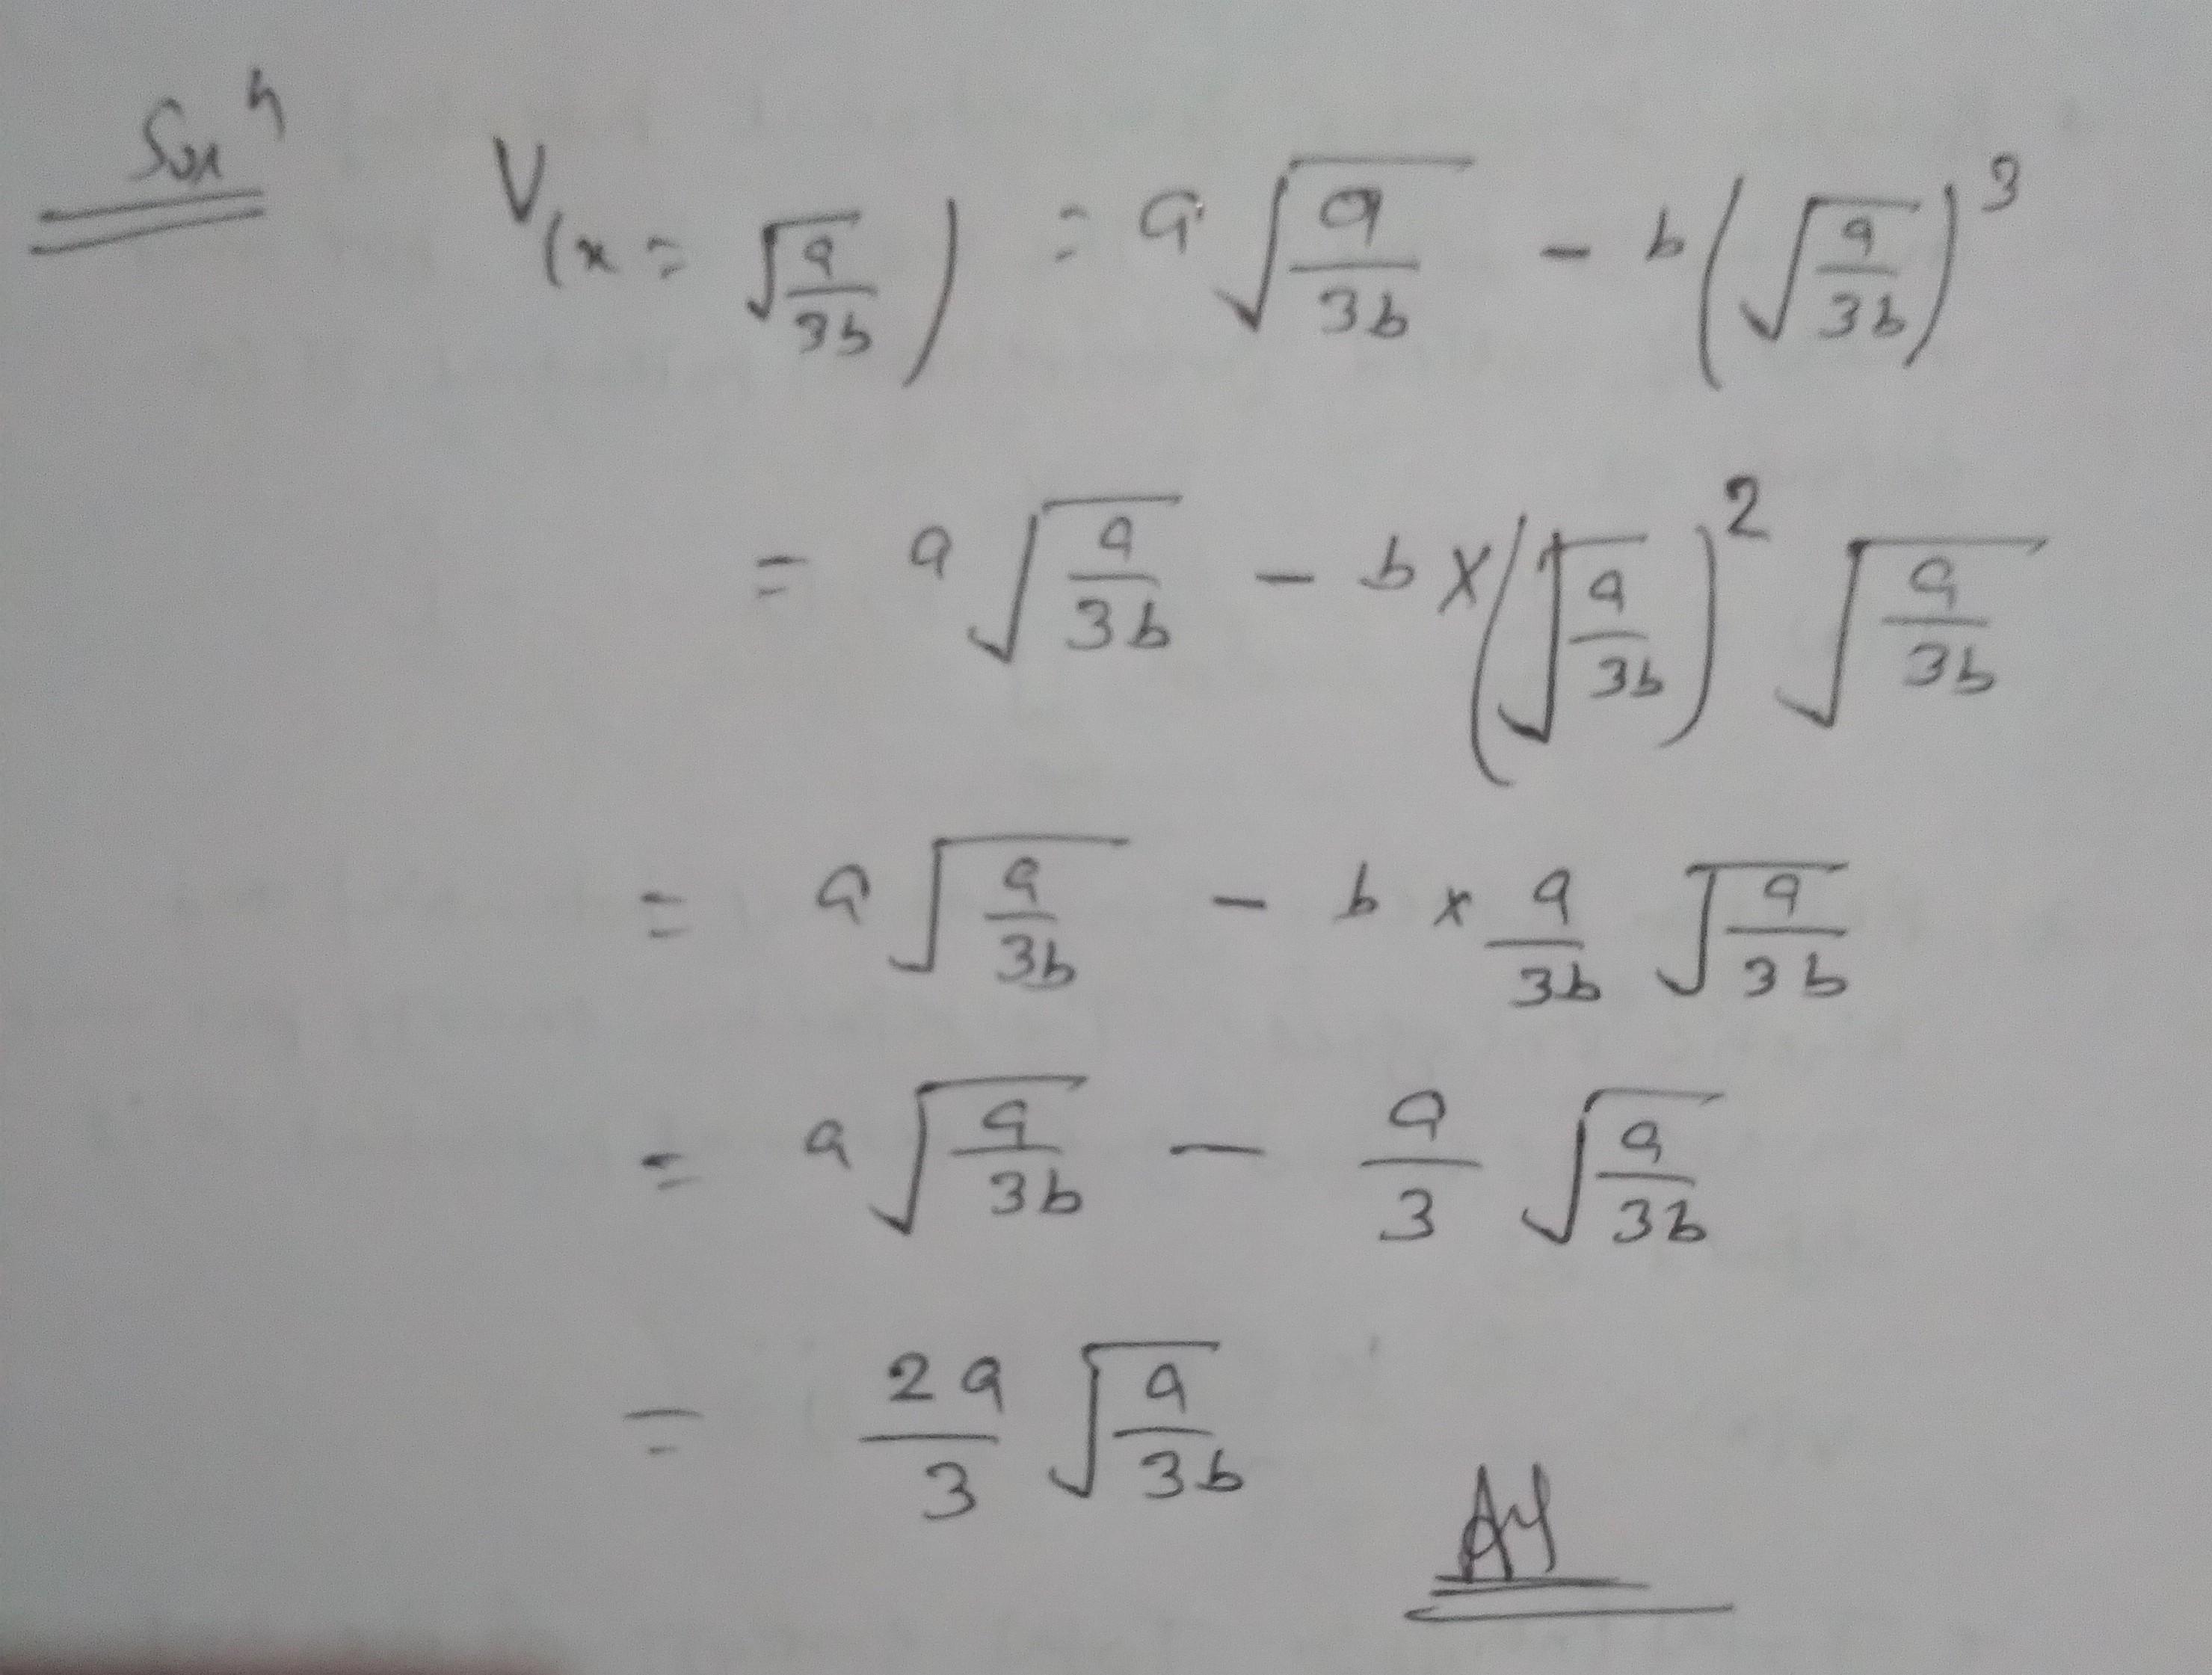 Solⁿ V(x = √(a/3b)) = a √(a/3b) - b (√(a/3b))³
= a √(a/3b) - b × (√(a/3b))² √(a/3b)
= a √(a/3b) - b × a/3b √(a/3b)
= a √(a/3b) - a/3 √(a/3b)
= 2a/3 √(a/3b)